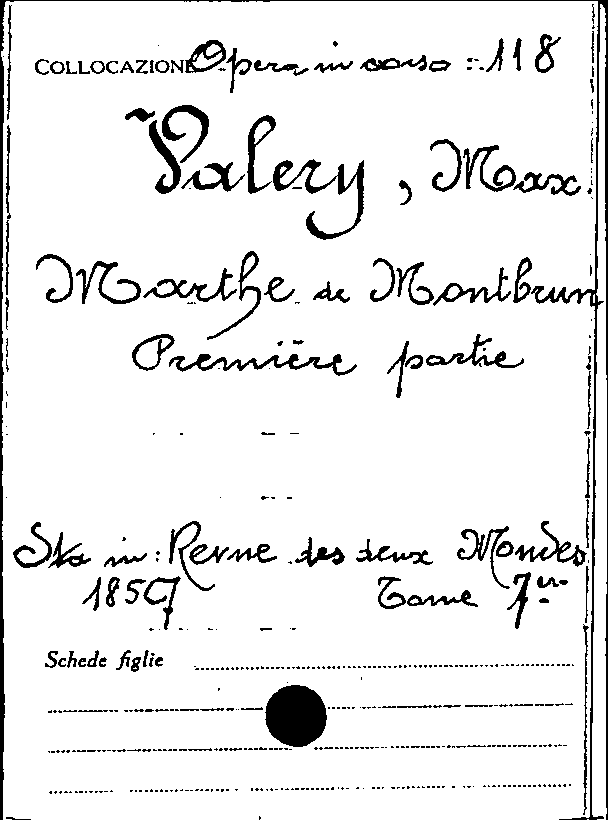 COLLOCAZIONE Opera in corso : 118
Valery, Max.
Marthe de Montbrun
Première partie
Sta in: Revue des deux Mondes
1857 Tome 7er
Schede figlie